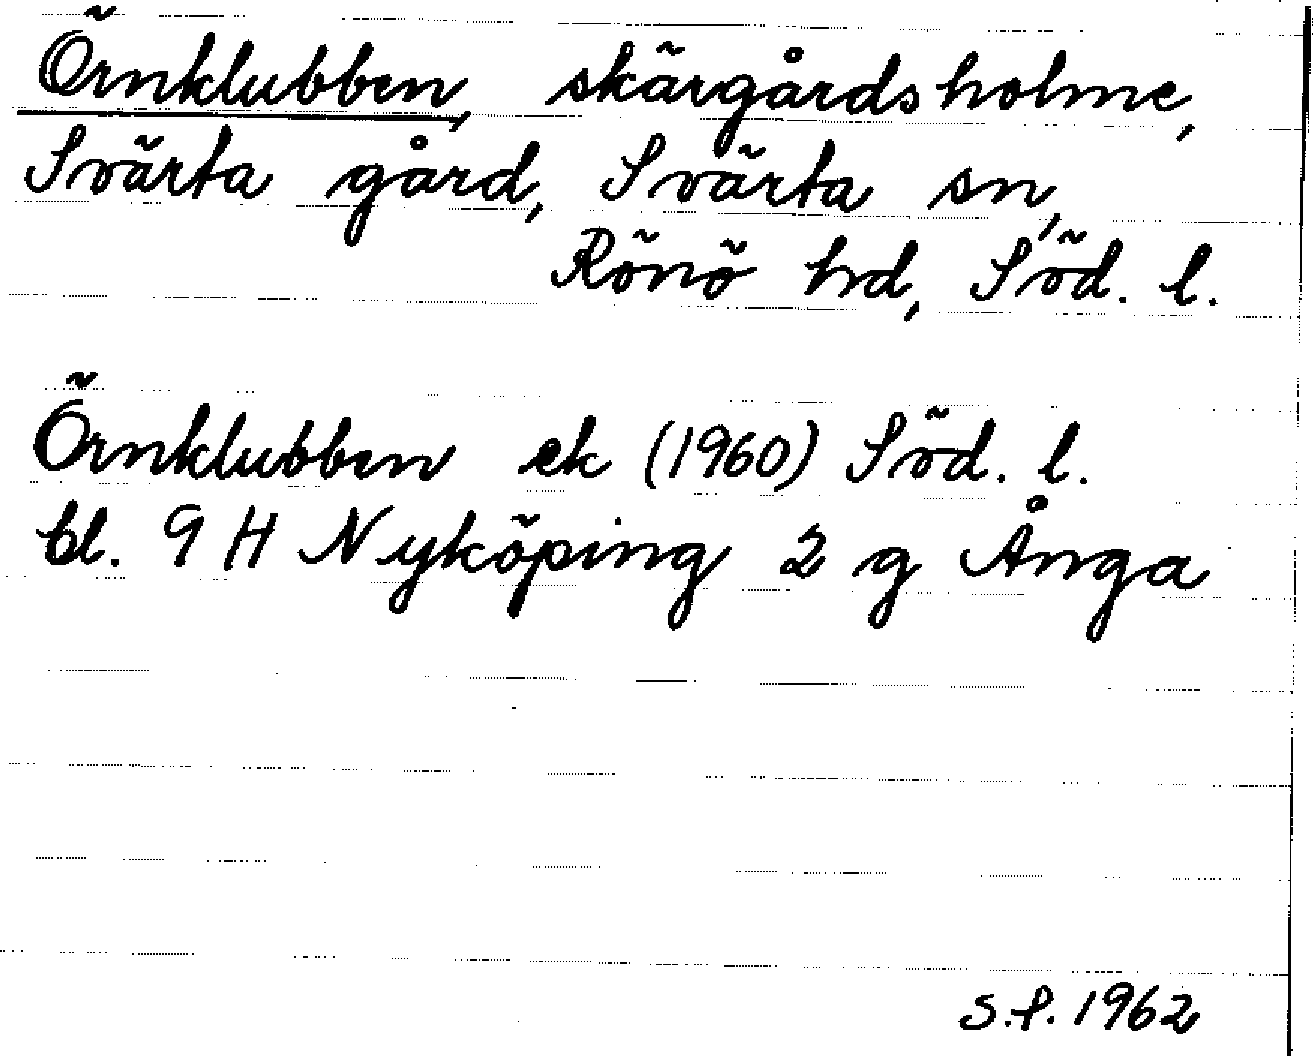 Örnklubben, skärgårdsholme,
Svärta gård, Svärta sn,
Rönö hd, Söd. l.
Örnklubben ek (1960) Söd. l.
bl. 9 H Nyköping 2 g Ånga
S.P. 1962